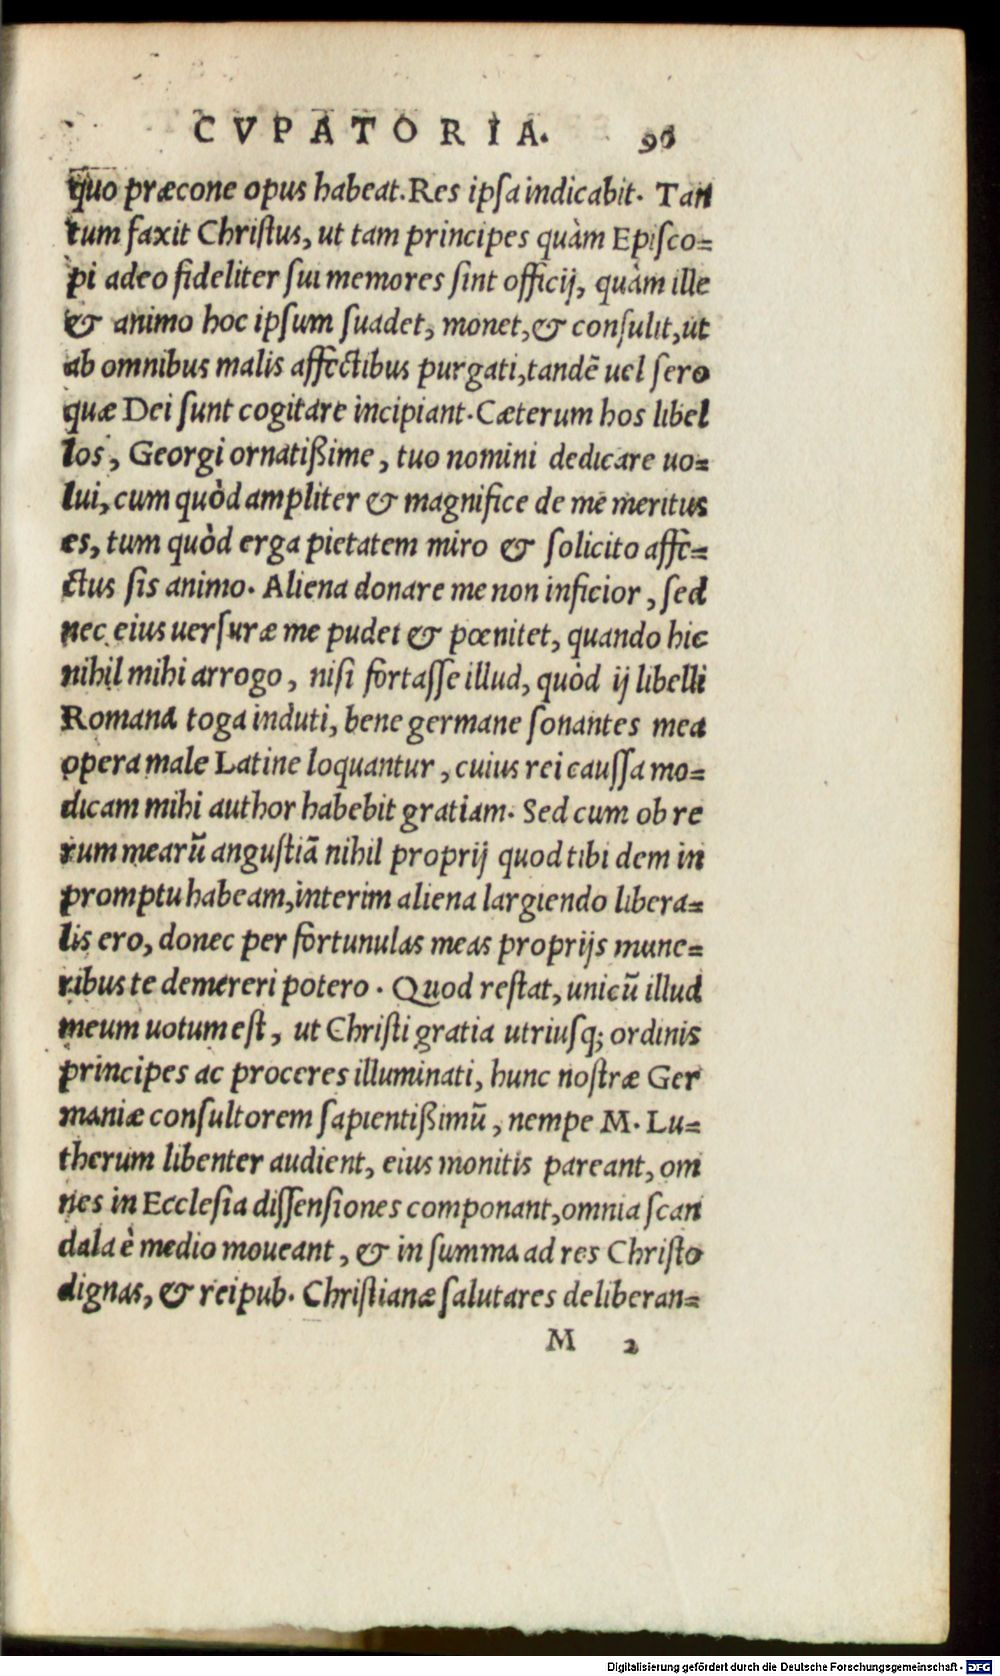 CVPATORIA. 96
quo præcone opus habeat. Res ipſa indicabit. Tan
tum faxit Chriſtus, ut tam principes quàm Epiſco=
pi adeo fideliter ſui memores ſint officij, quàm ille
& animo hoc ipſum ſuadet, monet, & conſulit, ut
ab omnibus malis affectibus purgati, tandẽ uel ſero
quæ Dei ſunt cogitare incipiant. Cæterum hos libel
los, Georgi ornatißime, tuo nomini dedicare uo=
lui, cum quòd ampliter & magnifice de me meritus
es, tum quòd erga pietatem miro & ſolicito affe=
ctus ſis animo. Aliena donare me non inficior, ſed
nec eius uerſuræ me pudet & pœnitet, quando hic
nihil mihi arrogo, niſi fortaſſe illud, quòd ij libelli
Romana toga induti, bene germane ſonantes mea
opera male Latine loquantur, cuius rei cauſſa mo=
dicam mihi author habebit gratiam. Sed cum ob re
rum mearũ anguſtiã nihil proprij quod tibi dem in
promptu habeam, interim aliena largiendo libera=
lis ero, donec per fortunulas meas proprijs mune=
ribus te demereri potero. Quod reſtat, unicũ illud
meum uotum eſt, ut Chriſti gratia utriuſq; ordinis
principes ac proceres illuminati, hunc noſtræ Ger
maniæ conſultorem ſapientißimũ, nempe M. Lu=
therum libenter audient, eius monitis pareant, om
nes in Eccleſia diſſenſiones componant, omnia ſcan
dala è medio moueant, & in ſumma ad res Chriſto
dignas, & reipub. Chriſtianæ ſalutares deliberan=
M 2
Digitalisierung gefördert durch die Deutsche Forschungsgemeinschaft - DFG